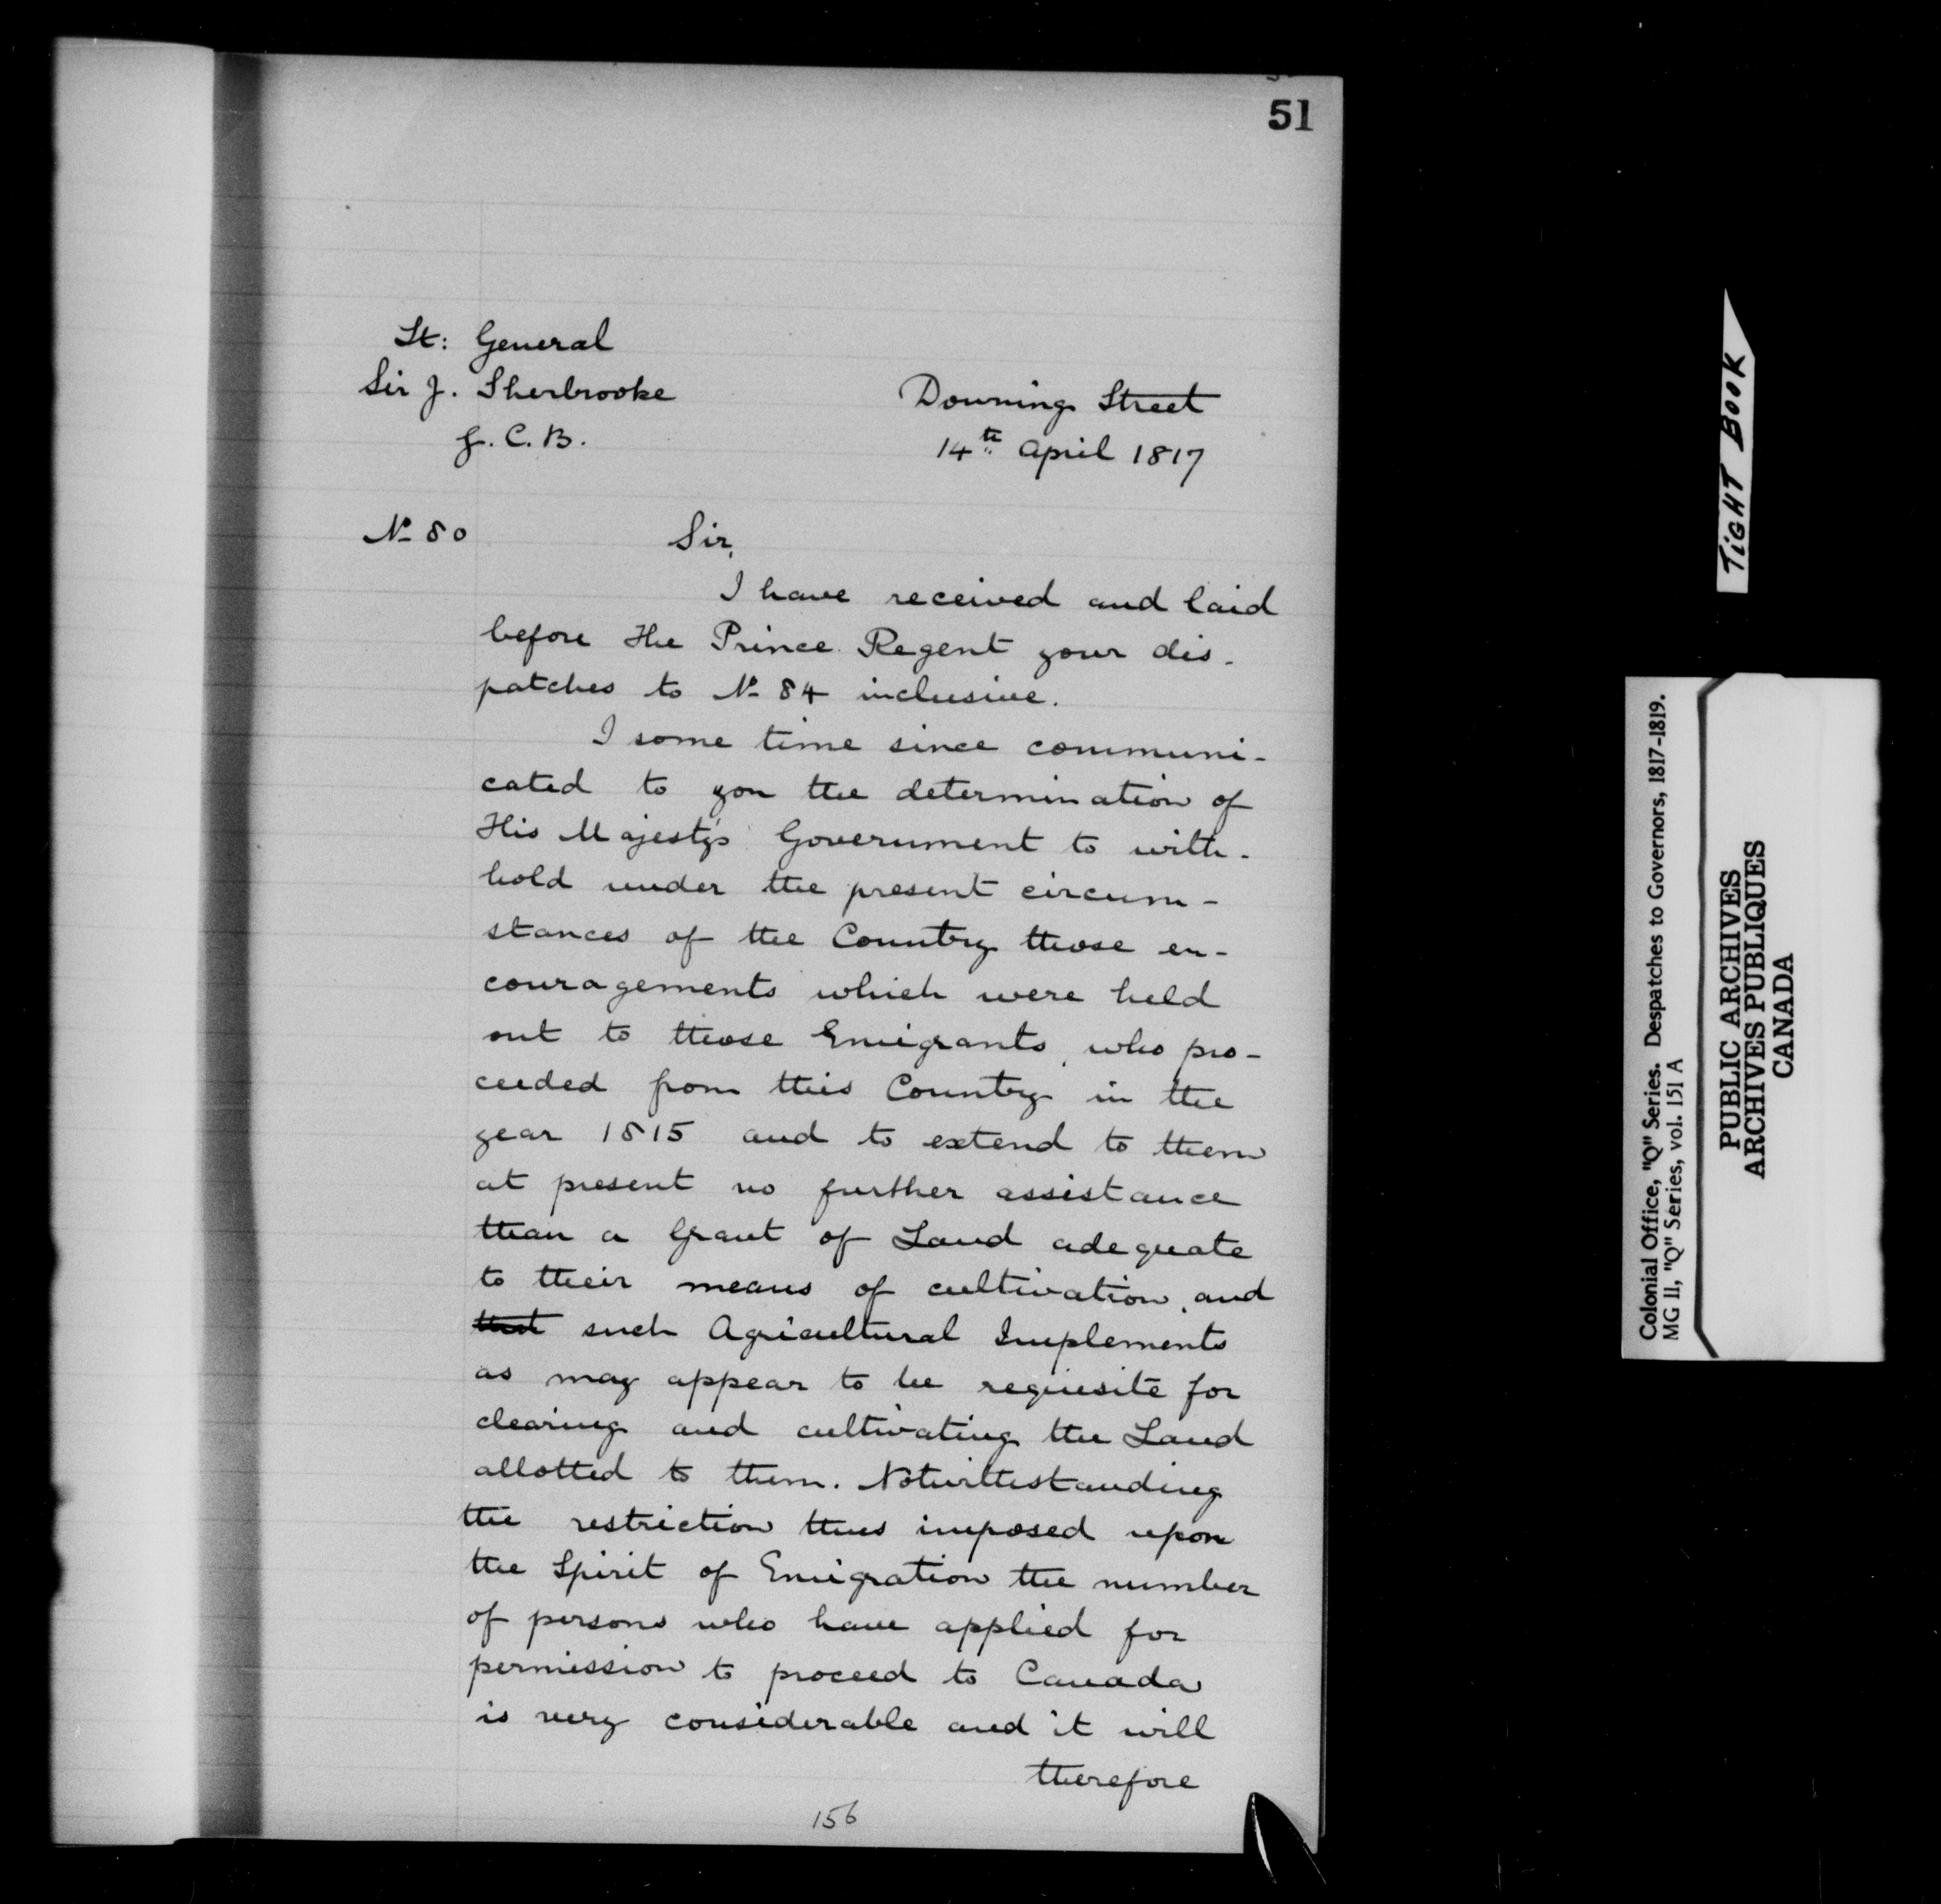 51
Lt: General
Sir J. Sherbrooke
G. C. B.
Downing Street
14th April 1817
No 80
Sir,
I have received and laid
before the Prince Regent your dis-
patches to No 84 inclusive.
I some time since communi-
cated to you the determination of
His Majesty's Government to with-
hold under the present circum-
stances of the Country those en-
couragements which were held
out to those Emigrants, who pro-
ceeded from this Country in the
year 1815 and to extend to them
at present no further assistance
than a Grant of Land adequate
to their means of cultivation, and
that such Agricultural Implements
as may appear to be requisite for
clearing and cultivating the Land
allotted to them. Notwithstanding
the restriction thus imposed upon
the Spirit of Emigration the number
of persons who have applied for
permission to proceed to Canada
is very considerable and it will
therefore
156
TIGHT BOOK
Colonial Office, "Q" Series. Despatches to Governors, 1817-1819.
MG 11, "Q" Series, vol. 151 A
PUBLIC ARCHIVES
ARCHIVES PUBLIQUES
CANADA